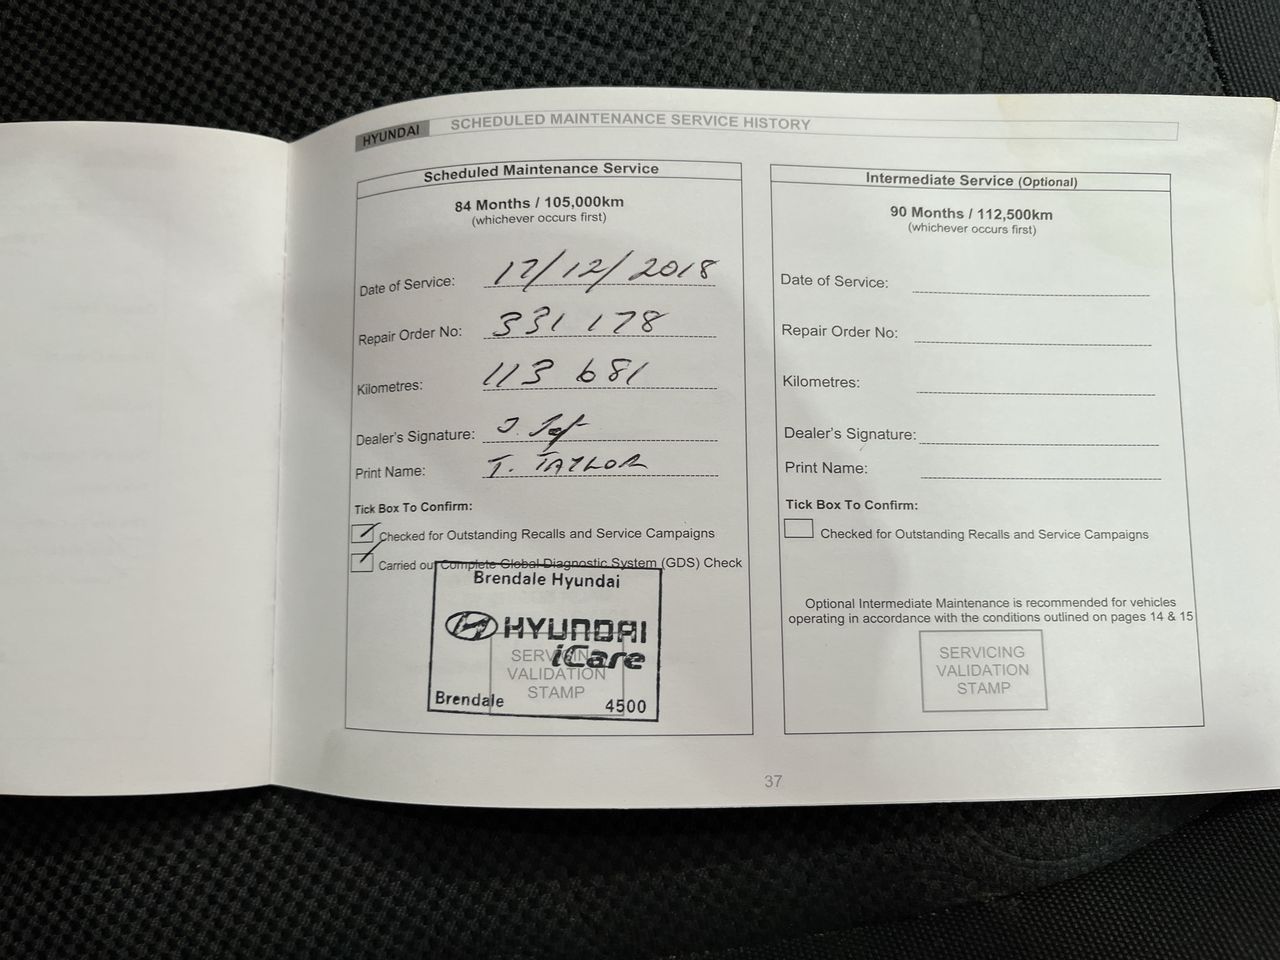 HYUNDAI SCHEDULED MAINTENANCE SERVICE HISTORY
Scheduled Maintenance Service
84 Months / 105,000km
(whichever occurs first)
Date of Service: 17/12/2018
Repair Order No: 331 178
Kilometres: 113 681
Dealer's Signature:
Print Name: T. TAYLOR
Tick Box To Confirm:
Checked for Outstanding Recalls and Service Campaigns
Carried out Complete Global Diagnostic System (GDS) Check
Brendale Hyundai
HYUNDAI
iCare
SERVICING
VALIDATION
STAMP
Brendale 4500
Intermediate Service (Optional)
90 Months / 112,500km
(whichever occurs first)
Date of Service:
Repair Order No:
Kilometres:
Dealer's Signature:
Print Name:
Tick Box To Confirm:
Checked for Outstanding Recalls and Service Campaigns
Optional Intermediate Maintenance is recommended for vehicles
operating in accordance with the conditions outlined on pages 14 & 15
SERVICING
VALIDATION
STAMP
37